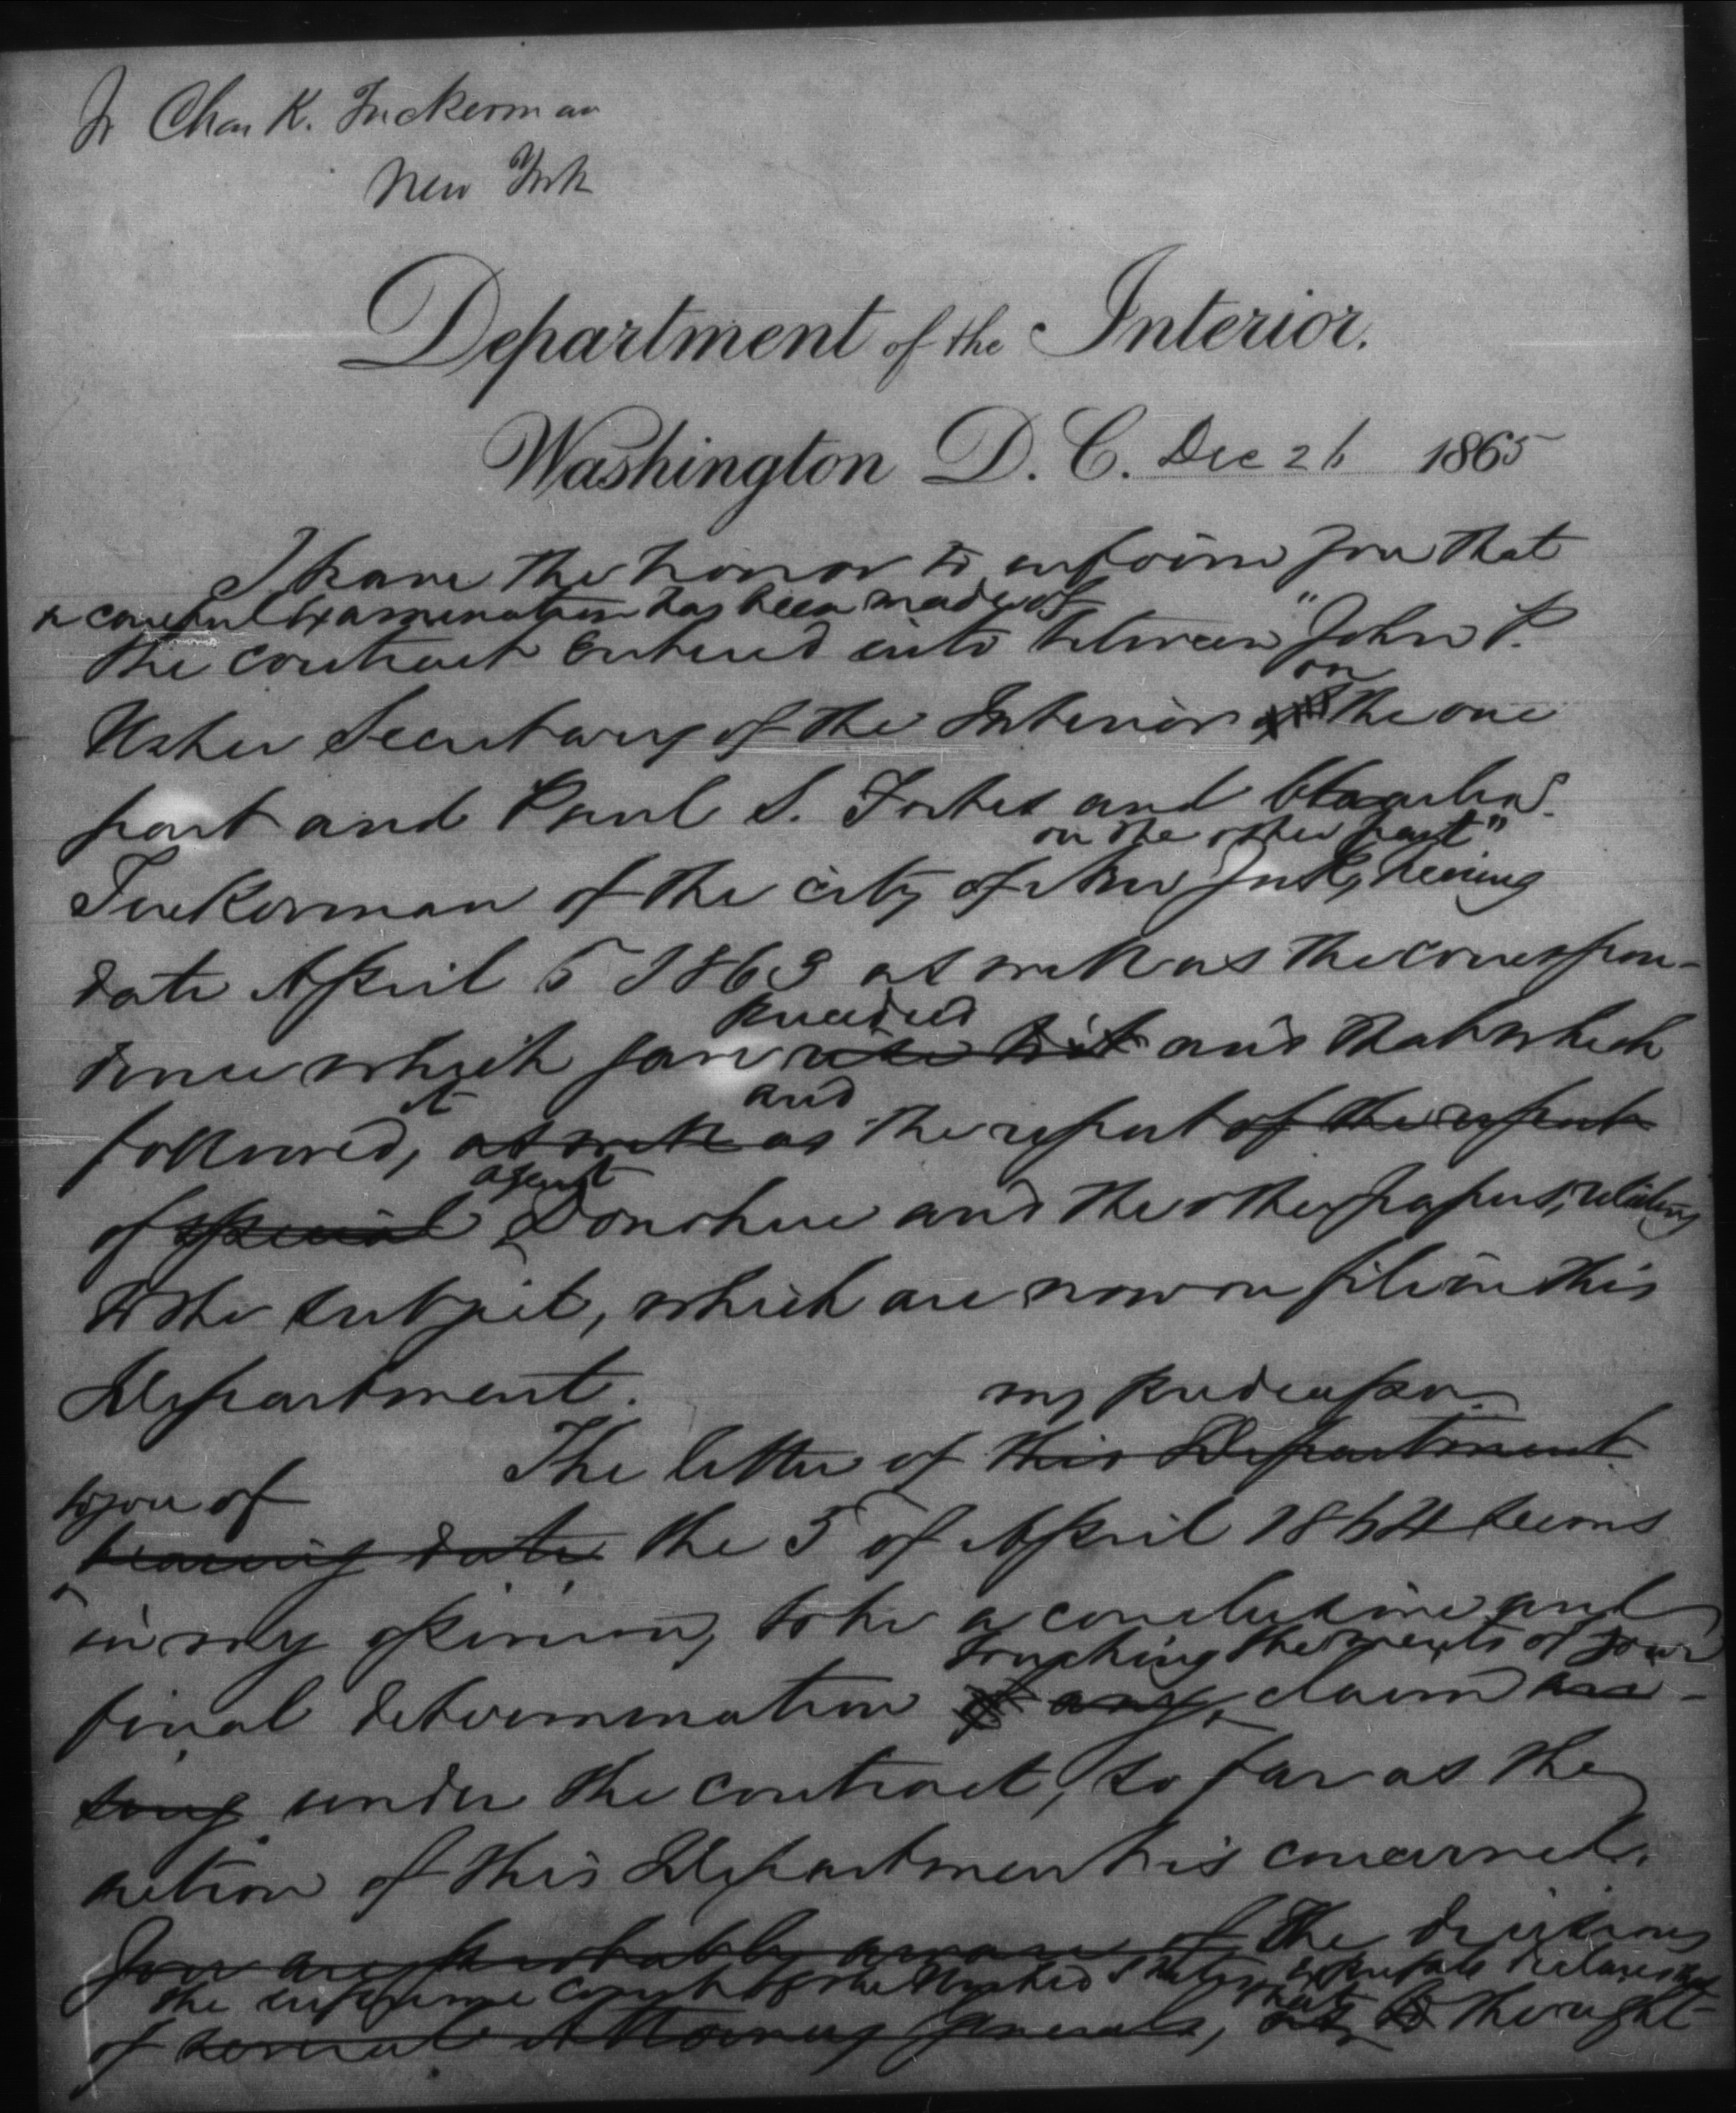 To Chas K. Tuckerman
New York
Department of the Interior.
Washington D. C. Dec 26 1865
I have the honor to inform you that
a careful examination has been made of
the contract entered into between "John P.
on
Usher Secretary of the Interior the one
part and Paul S. Forbes and Charles
on the other part"
Tuckerman of the city of New York, bearing
date April 6 1863 as well as the correspon-
preceded
dence which and that which
it and
followed, as well as the report of the report
agent
of special Donohue and the other papers, relating
to the subject, which are now on file in this
Department.
my predecessor
The letter of this Department
to you of
bearing date the 5 of April 1864 seems
in my opinion, to be a conclusive and
touching the merits of your
final determination of any claim ari-
sing under the contract, so far as the
action of this Department is concerned.
You are probably aware of the decisions
the supreme court of the United States
of several Attorneys General, the right